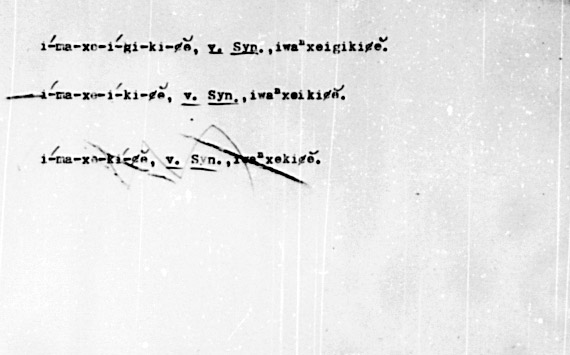 í-ma-xe-í-gi-ki-ȼĕ, v. Syn., iwaⁿxeigikiȼĕ.
í-ma-xe-í-ki-ȼĕ, v. Syn., iwaⁿxeikiȼĕ.
í-ma-xe-kí-ȼĕ, v. Syn., iwaⁿxekiȼĕ.